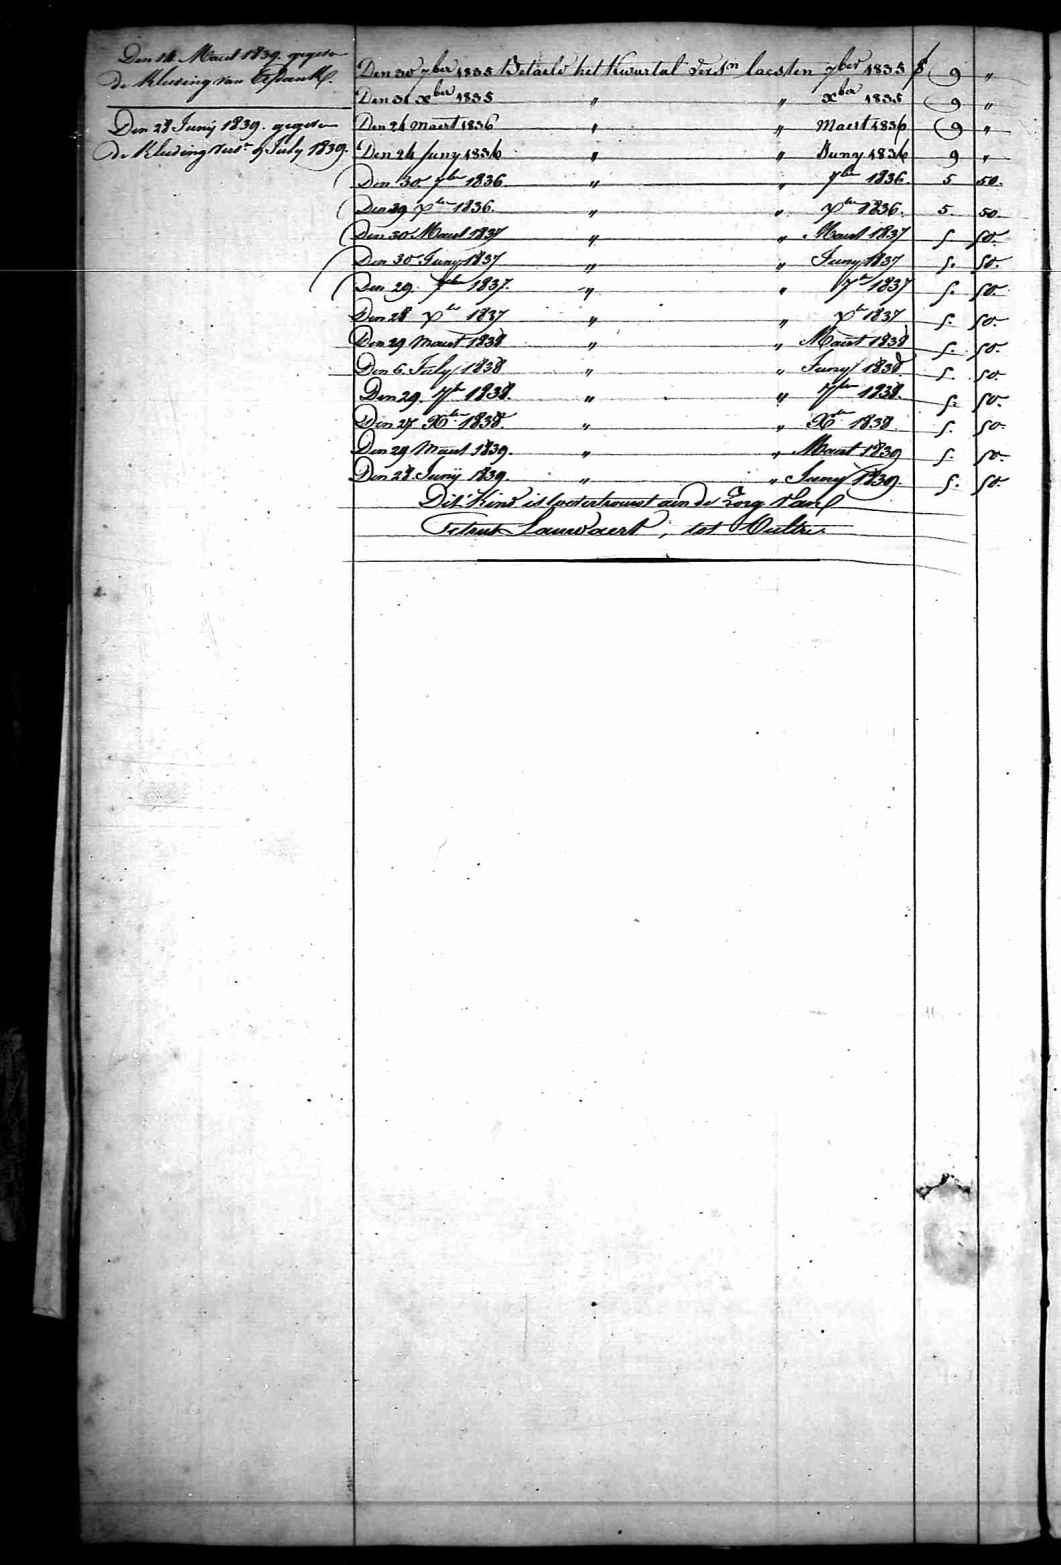 Den 14 Maert 1839. gegeven
de kleeding van
Den 28 Junij 1839. gegeven
de kleeding 9 July 1839.
Den 30 7ber 1835 Betaeld het kwartal laesten 7ber 1835 f 9 "
Den 31 xber 1835 " " xber 1835 9 "
Den 24 Maert 1836 " " Maert 1836 9 "
Den 24 Juny 1836 " " Juny 1836 9 "
Den 30 7ber 1836 " " 7ber 1836. 5 50.
Den 29 xber 1836. " " xber 1836. 5 50
Den 30 Maert 1837 " " Maert 1837 5 50.
Den 30 Juny 1837 " " Juny 1837 5. 50.
Den 29. 7ber 1837. " " 7r 1837 5. 50.
Den 28 xber 1837 " " xr 1837 5. 50.
Den 29 Maert 1838 " " Maert 1838 5. 50.
Den 6. July 1838 " " Juny 1838. 5. 50.
Den 29. 7br 1838. " " 7ber 1838. 5. 50.
Den 27 Xber 1838. " " Xbr 1838 5. 50.
Den 29 Maert 1839. " " Maert 1839 5. 50.
Den 28. Junij 1839. " " Juny 1839 5. 50
Dit Kind is toevertrouwt aen de Zorg van
Lauwaert, tot